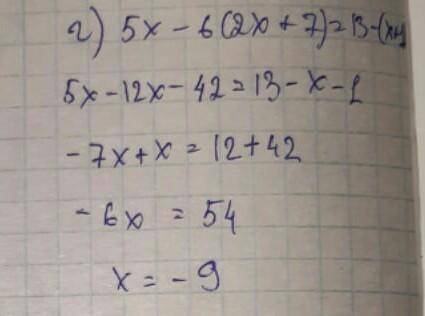 г) 5x - 6(2x + 7) = 13 - (x+1)
5x - 12x - 42 = 13 - x - 1
- 7x + x = 12 + 42
- 6x = 54
x = - 9